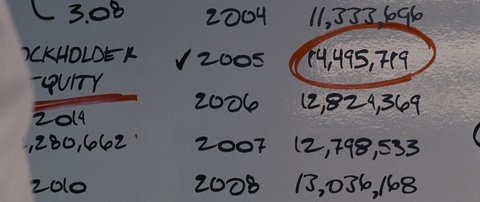 3.08
2004 11,333,696
OCKHOLDER
EQUITY
✓ 2005 14,495,719
2006 12,824,369
2014
,280,662
2007 12,798,533
2010
2008 13,036,168